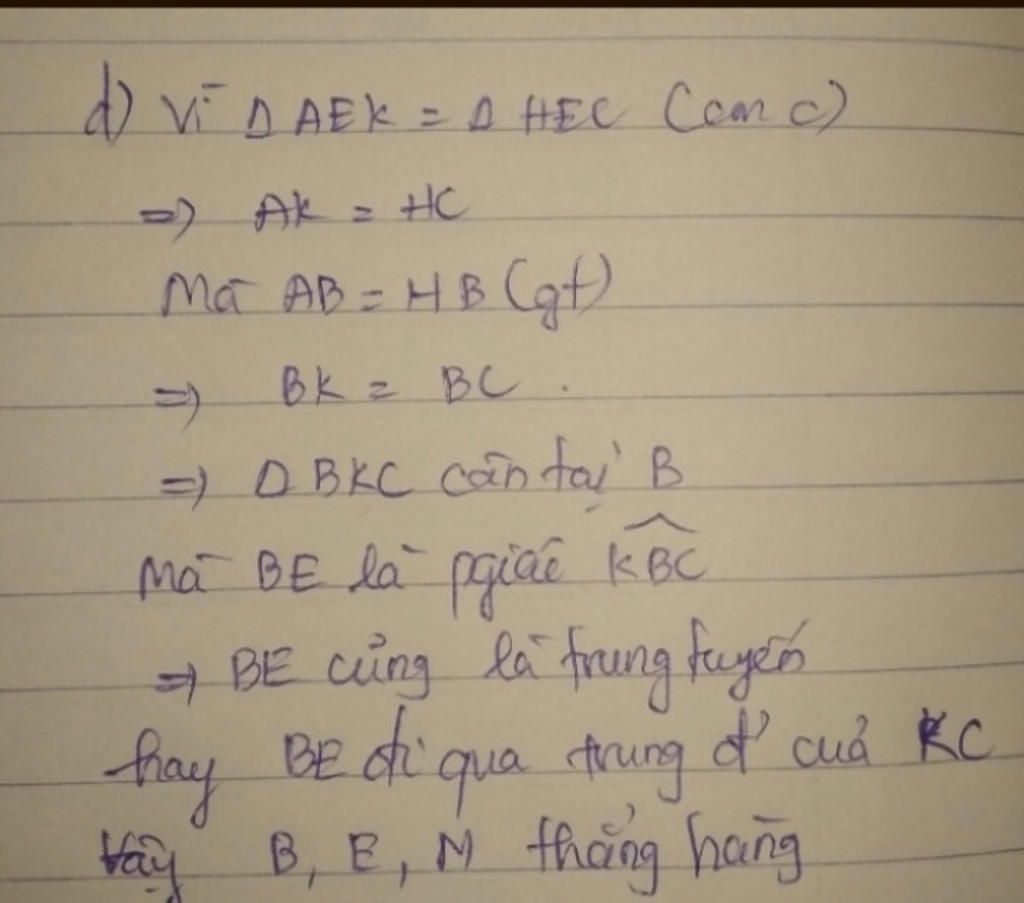 d) Vì Δ AEK = Δ HEC (cm c)
=> AK = HC
Mà AB = HB (gt)
=> BK = BC.
=> Δ BKC cân tại B
Mà BE là pgiác \widehat{KBC}
=> BE cũng là trung tuyến
hay BE đi qua trung đ' của KC
Vậy B, E, M thẳng hàng